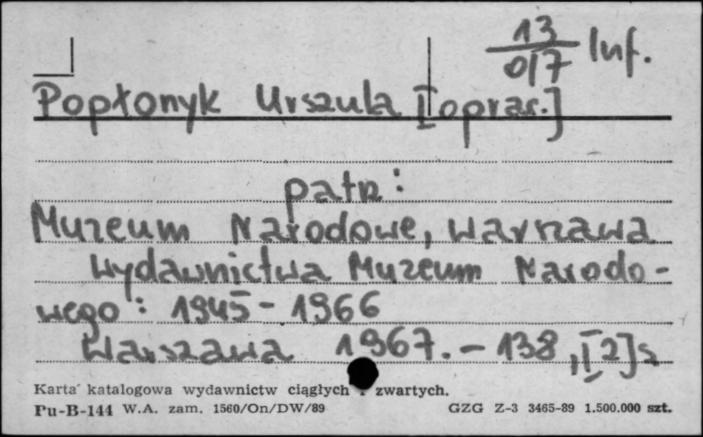 13
0/7 Inf.
Popłonyk Urszula [oprac.]
patrz:
Muzeum Narodowe, Warszawa
Wydawnictwa Muzeum Narodo-
wego: 1945-1966
Warszawa 1967. - 138, [2] s
Karta katalogowa wydawnictw ciągłych i zwartych.
Pu-B-144 W.A. zam. 1560/On/DW/89 GZG Z-3 3465-89 1.500.000 szt.